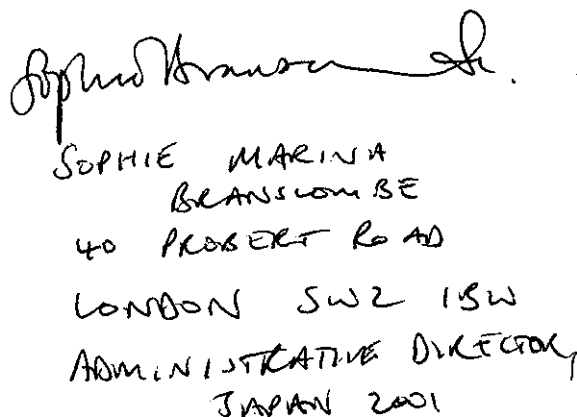 Sophie Branscombe
SOPHIE MARINA
BRANSCOMBE
40 PROBERT ROAD
LONDON SW2 1BW
ADMINISTRATIVE DIRECTOR,
JAPAN 2001